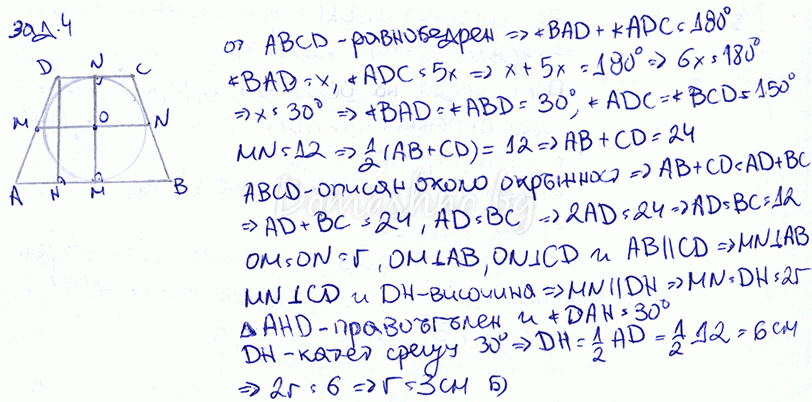 зад.4
D N C
M O N
A H M B
от ABCD - равнобедрен => ∢BAD + ∢ADC = 180°
∢BAD = x, ∢ADC = 5x => x + 5x = 180° => 6x = 180°
=> x = 30° => ∢BAD = ∢ABD = 30°, ∢ADC = ∢BCD = 150°
MN = 12 => 1/2(AB + CD) = 12 => AB + CD = 24
ABCD - описан около окръжност => AB + CD = AD + BC
=> AD + BC = 24, AD = BC => 2AD = 24 => AD = BC = 12
OM = ON = r, OM⊥AB, ON⊥CD и AB||CD => MN⊥AB
MN⊥CD и DH - височина => MN||DH => MN = DH = 2r
△AHD - правоъгълен и ∢DAH = 30°
DH - катет срещу 30° => DH = 1/2 AD = 1/2 12 = 6 см
=> 2r = 6 => r = 3 см Б)